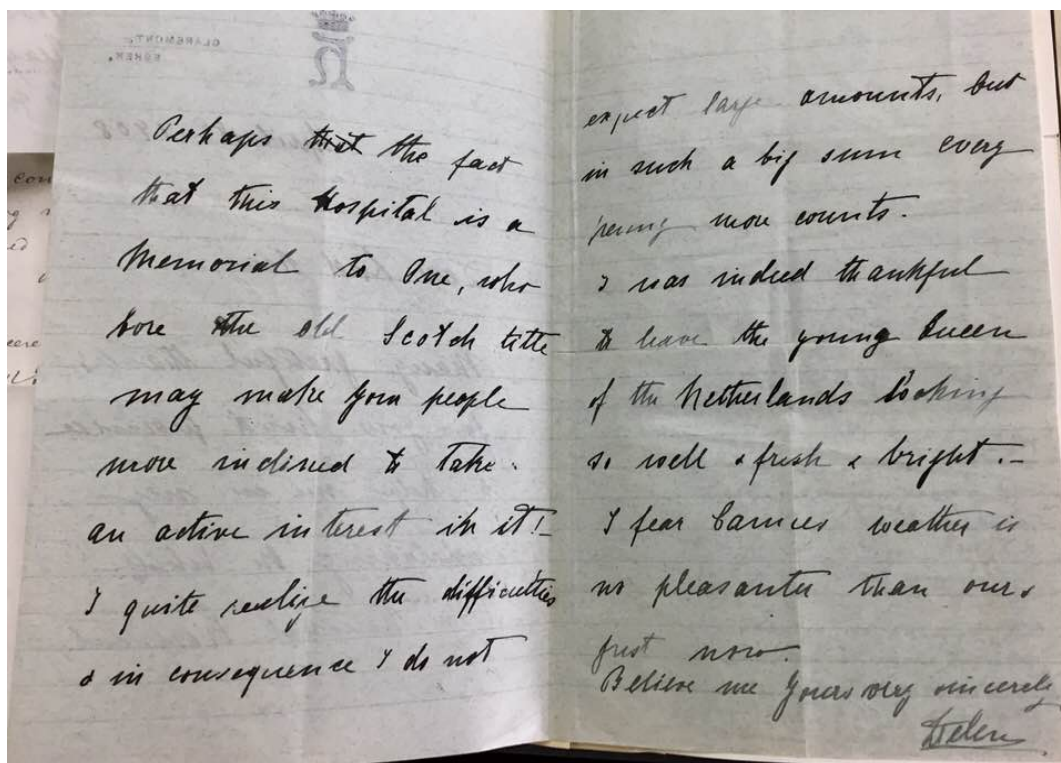 CLAREMONT.
ESHER.
Perhaps that the fact
that this Hospital is a
Memorial to One, who
bore the old Scotch title
may make your people
more inclined to take
an active interest in it! -
I quite realize the difficulties
& in consequence I do not
expect large amounts, but
in such a big sum every
penny more counts.
I was indeed thankful
to have the young Queen
of the Netherlands looking
so well & fresh & bright. -
I fear Cannes weather is
no pleasanter than ours
just now.
Believe me Yours very sincerely
Helen